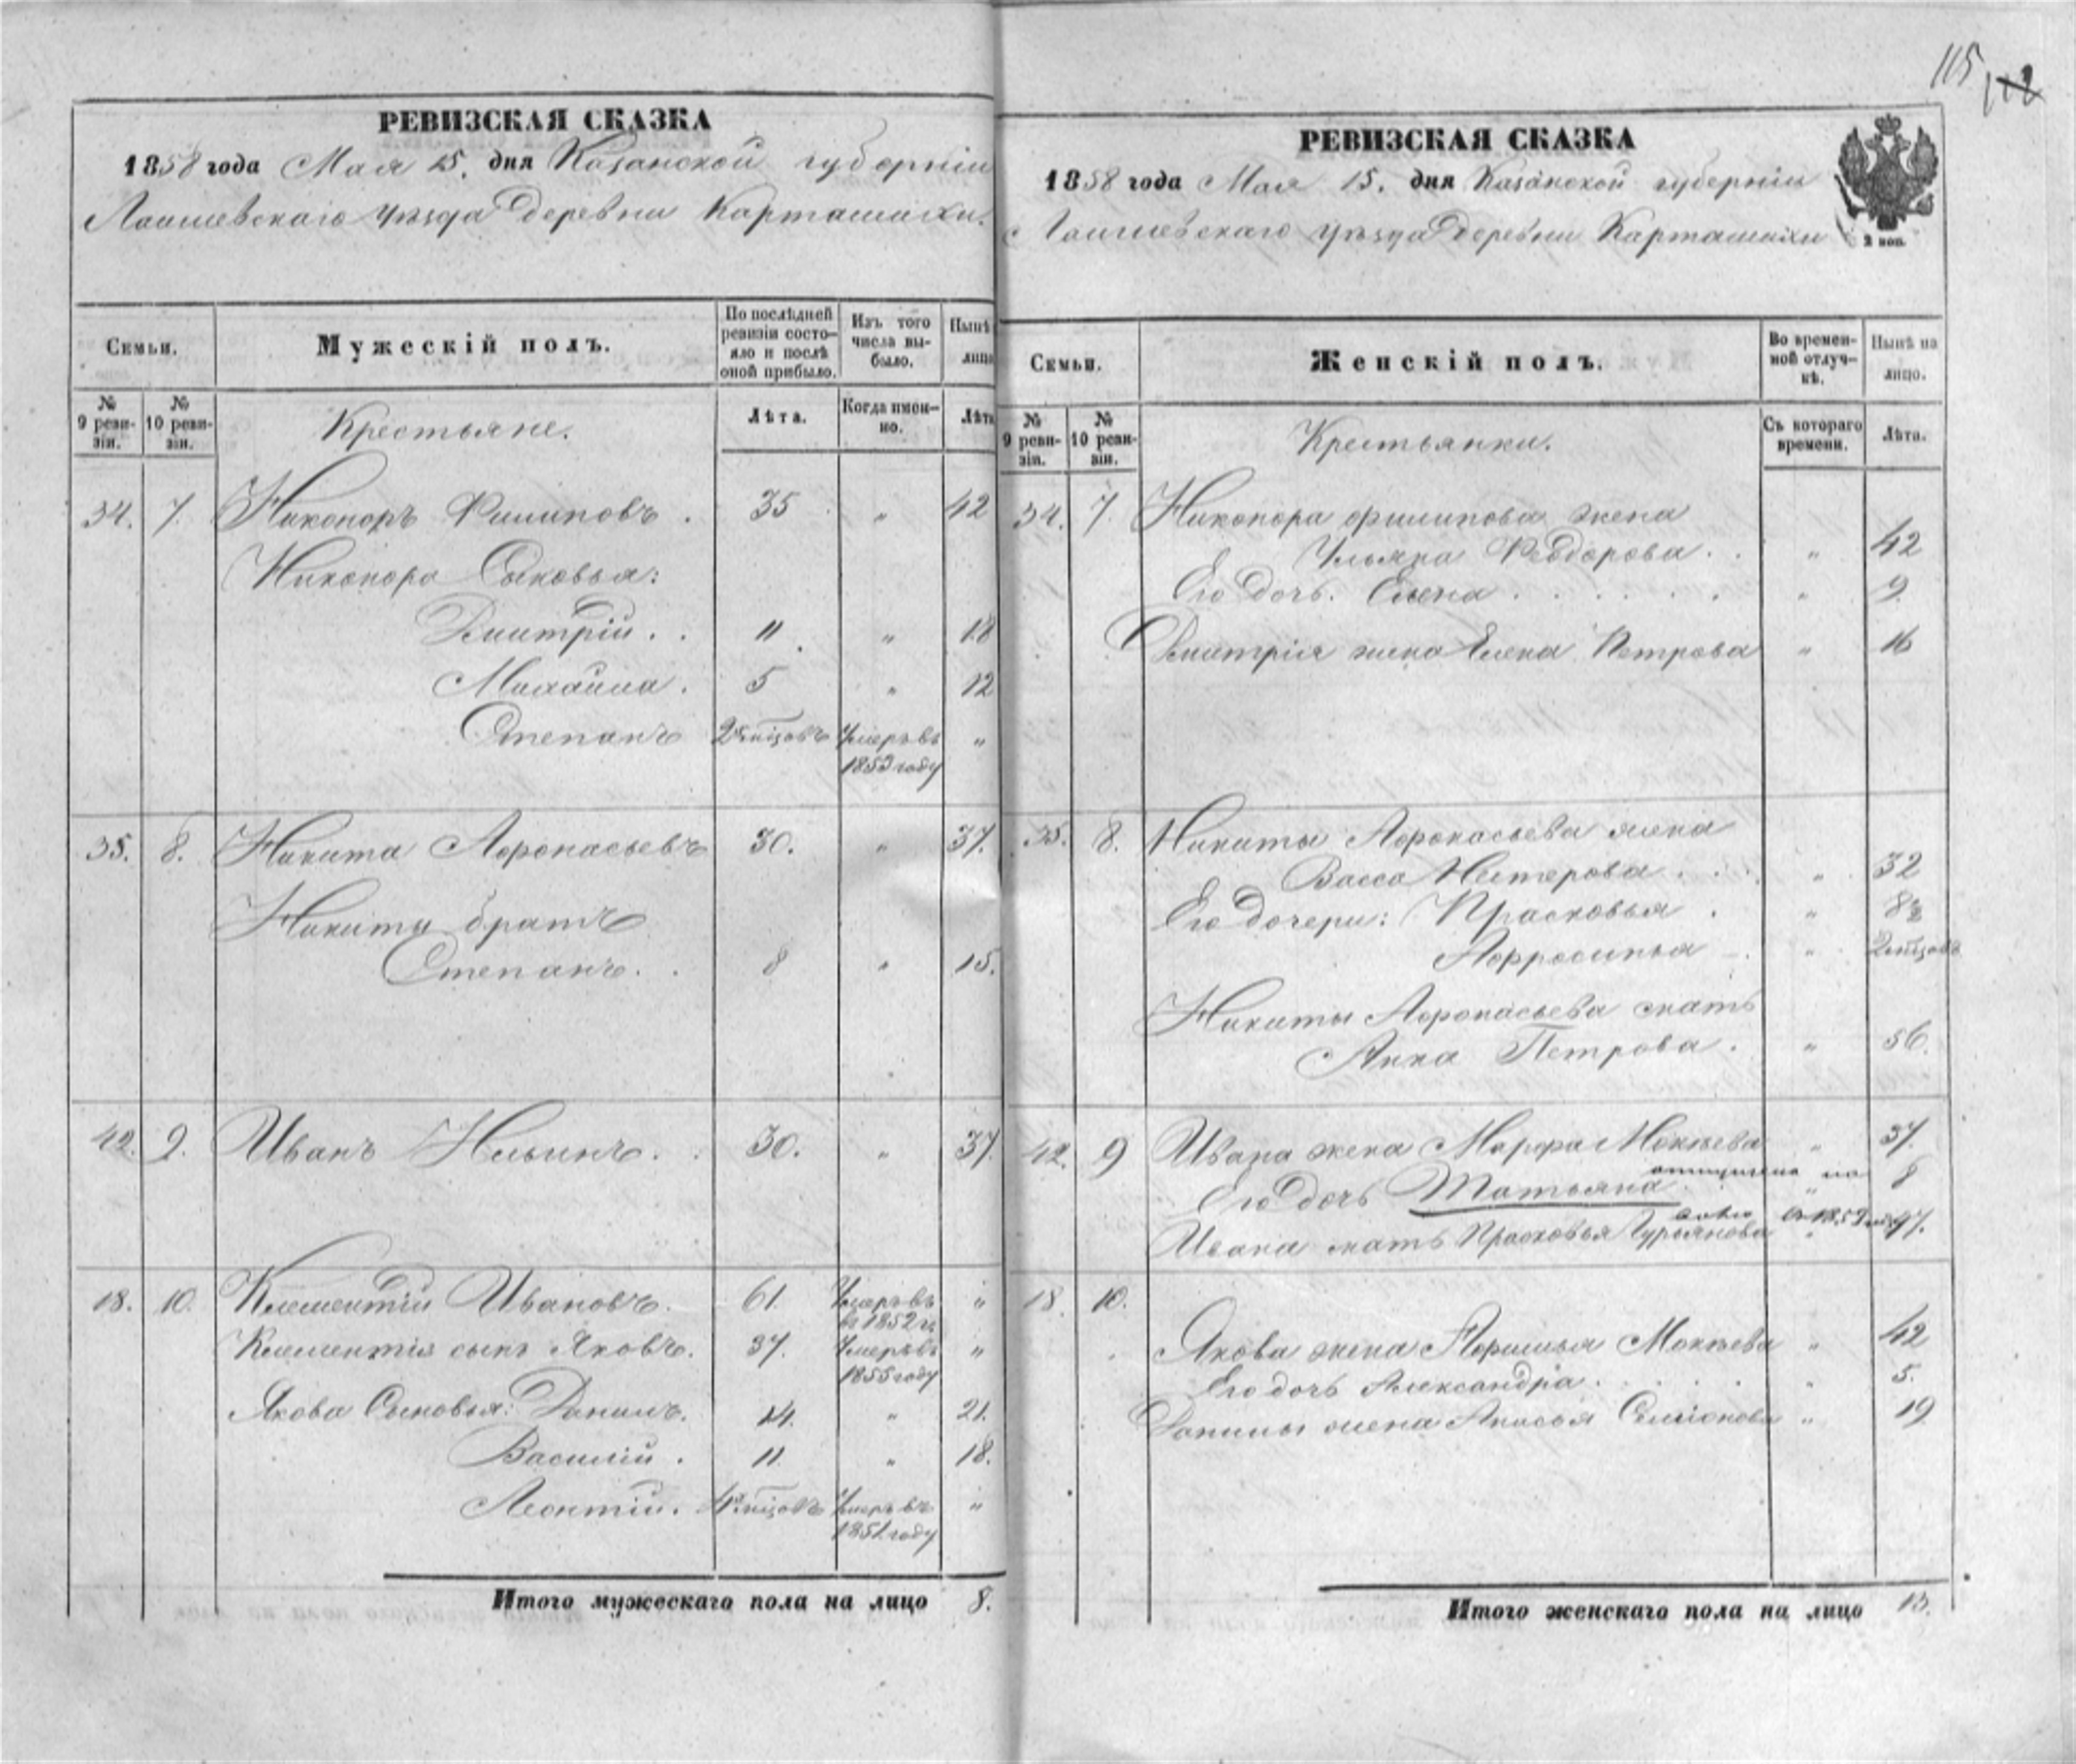 РЕВИЗСКАЯ СКАЗКА
1858 года Мая 15. дня Казанской губерніи
Лаишевскаго Уѣзда Деревни Карташихи.
Семьи.
Мужескій полъ.
По послѣдней ревизіи состояло и послѣ оной прибыло.
Изъ того числа выбыло.
Нынѣ
лицо
№ 9 ревизіи.
№ 10 ревизіи.
Крестьяне.
Лѣта.
Когда именно.
Лѣта
34. 7. Никоноръ Филиповъ. 35 " 42
Никонора Сыновья:
Дмитрій. . 11 " 18
Михайла. 5 " 12
Степанъ 2 мѣсцовъ Умеръ въ "
1853 году
35. 8. Никита Афонасьевъ 30. " 37.
Никиты братъ
Степанъ. . 8 " 15.
42. 9. Иванъ Ильинъ. . 30. " 37.
18. 10. Клементій Ивановъ. 61. Умеръ въ "
1852
Клементія сынъ Яковъ. 37. Умеръ въ "
1855 году
Якова Сыновья: Данилъ. 14. " 21.
Василій. 11. " 18.
Леонтій. 4 мѣсцовъ Умеръ въ "
1851 году
Итого мужескаго пола на лицо 8.
115
РЕВИЗСКАЯ СКАЗКА
1858 года Мая 15. дня Казанской губерніи
Лаишевскаго Уѣзда Деревни Карташихи
2 коп.
Семьи.
Женскій полъ.
Во временной отлучкѣ.
Нынѣ на лицо.
№ 9 ревизіи.
№ 10 ревизіи.
Крестьянки.
Съ котораго времени.
Лѣта.
34. 7. Никонора филипова жена
Ульяна Феодорова. . " 42
Его дочь. Елена . . . . . . " 9.
Дмитрія жена Елена Петрова " 16
35. 8. Никиты Афонасьева жена
Васса Нестерова . . . " 32
Его дочери: Прасковья . " 8½
Афросинья . " 2 мѣсцовъ
Никиты Афонасьева мать
Анна Петрова. " 56.
42. 9 Ивана жена Марфа Мокѣева " 37.
отпущена на
Его дочь Татьяна. . " 8
волю 1859
Ивана мать Прасковья Гурьянова " 47.
18. 10.
Якова жена Мокѣева " 42
Его дочь Александра. . . . . " 5.
Данилы жена Анисья Семіонова " 19
Итого женскаго пола на лицо 13.